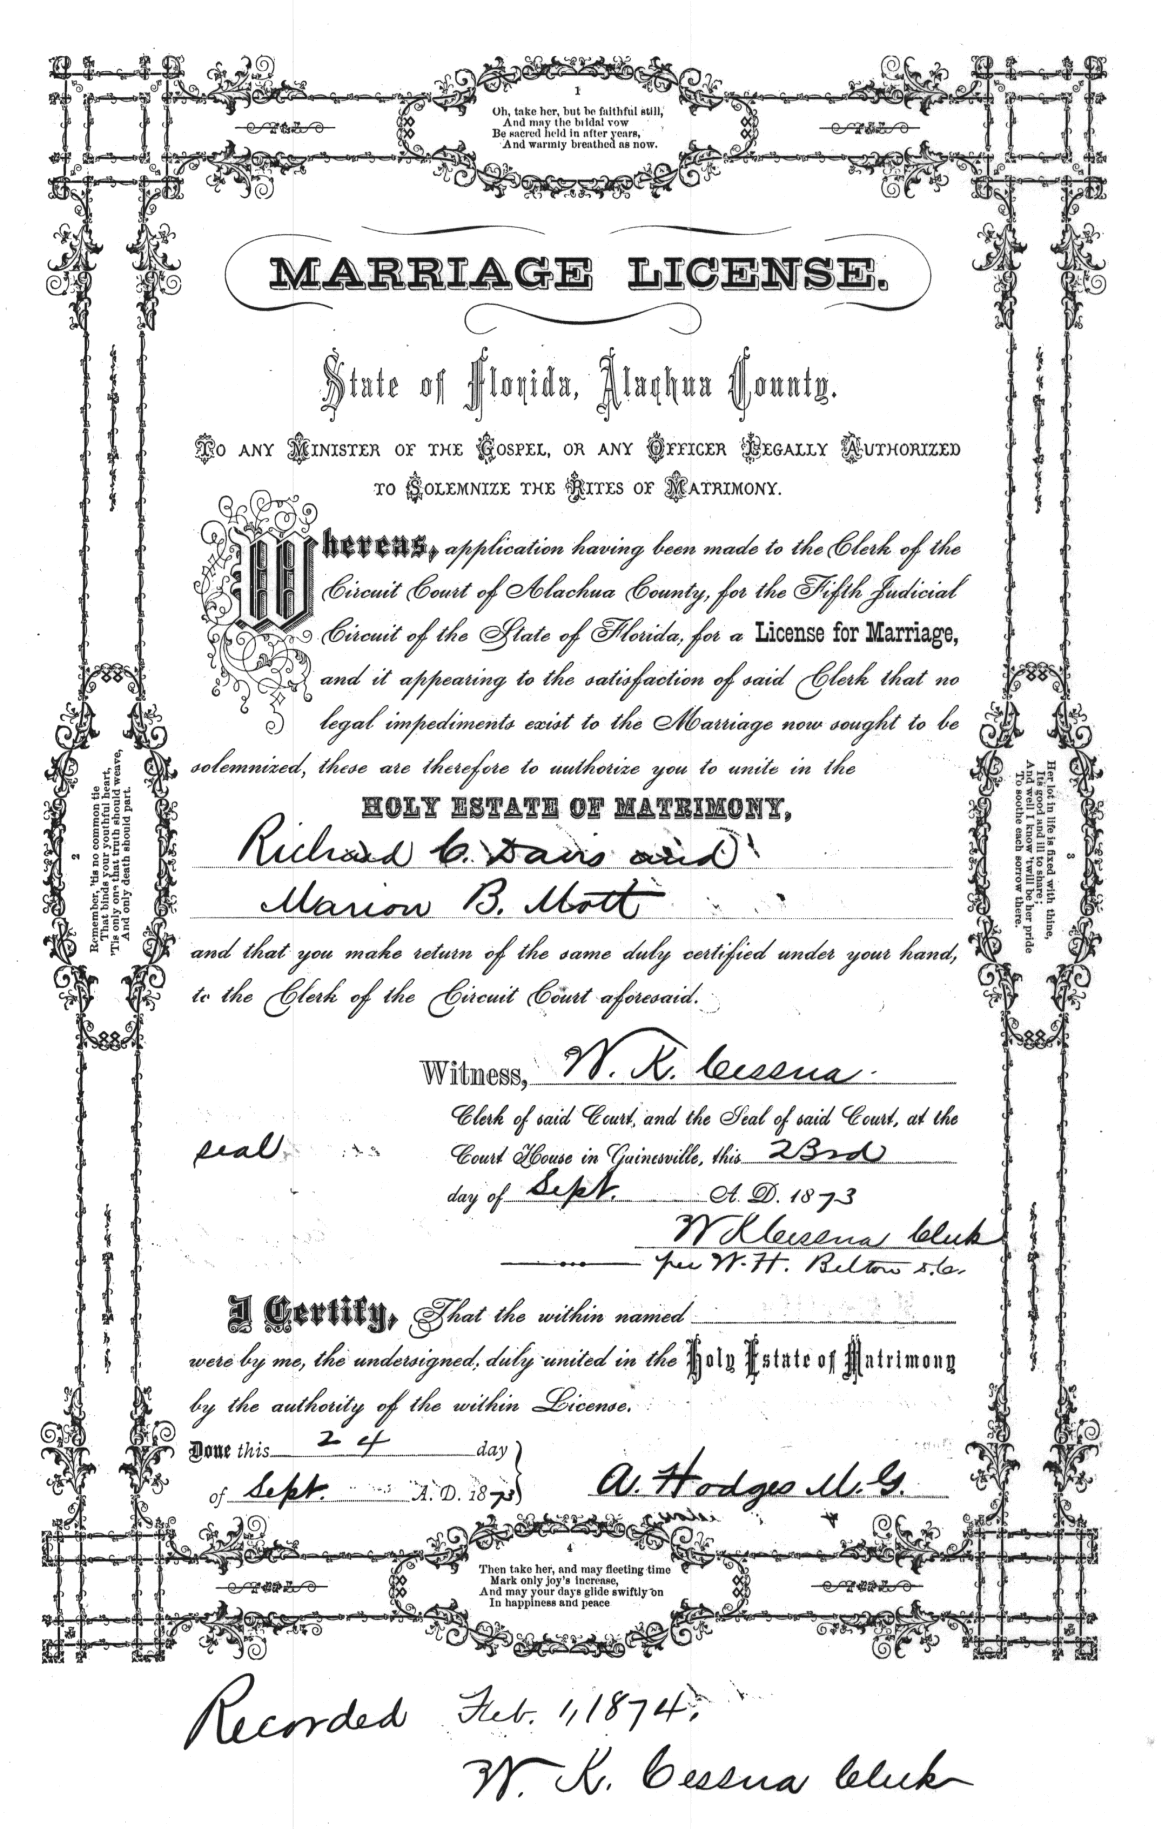 1
Oh, take her, but be faithful still,
And may the bridal vow
Be sacred held in after years,
And warmly breathed as now.
MARRIAGE LICENSE.
State of Florida, Alachua County.
TO ANY MINISTER OF THE GOSPEL, OR ANY OFFICER LEGALLY AUTHORIZED
TO SOLEMNIZE THE RITES OF MATRIMONY.
Whereas, application having been made to the Clerk of the
Circuit Court of Alachua County, for the Fifth Judicial
Circuit of the State of Florida, for a License for Marriage,
and it appearing to the satisfaction of said Clerk that no
legal impediments exist to the Marriage now sought to be
solemnized, these are therefore to authorize you to unite in the
HOLY ESTATE OF MATRIMONY,
Richard C. Davis and
Marion B. Mott
and that you make return of the same duly certified under your hand,
to the Clerk of the Circuit Court aforesaid.
2
Remember, 'tis no common tie
That binds your youthful heart,
'Tis only one that truth should weave,
And only death should part.
3
Her lot in life is fixed with thine,
Its good and ill to share;
And well I know 'twill be her pride
To soothe each sorrow there.
Witness, W. K. Cessna
Clerk of said Court, and the Seal of said Court, at the
seal
Court House in Gainesville, this 23rd
day of Sept. A. D. 1873
W K Cessna Clerk
per W. H. Belton D.C.
I Certify, That the within named
were by me, the undersigned, duly united in the Holy Estate of Matrimony
by the authority of the within License.
Done this 24 day
of Sept. A. D. 1873
A. Hodges M. G.
4
Then take her, and may fleeting time
Mark only joy's increase,
And may your days glide swiftly on
In happiness and peace
Recorded Feb. 1, 1874.
W. K. Cessna Clerk